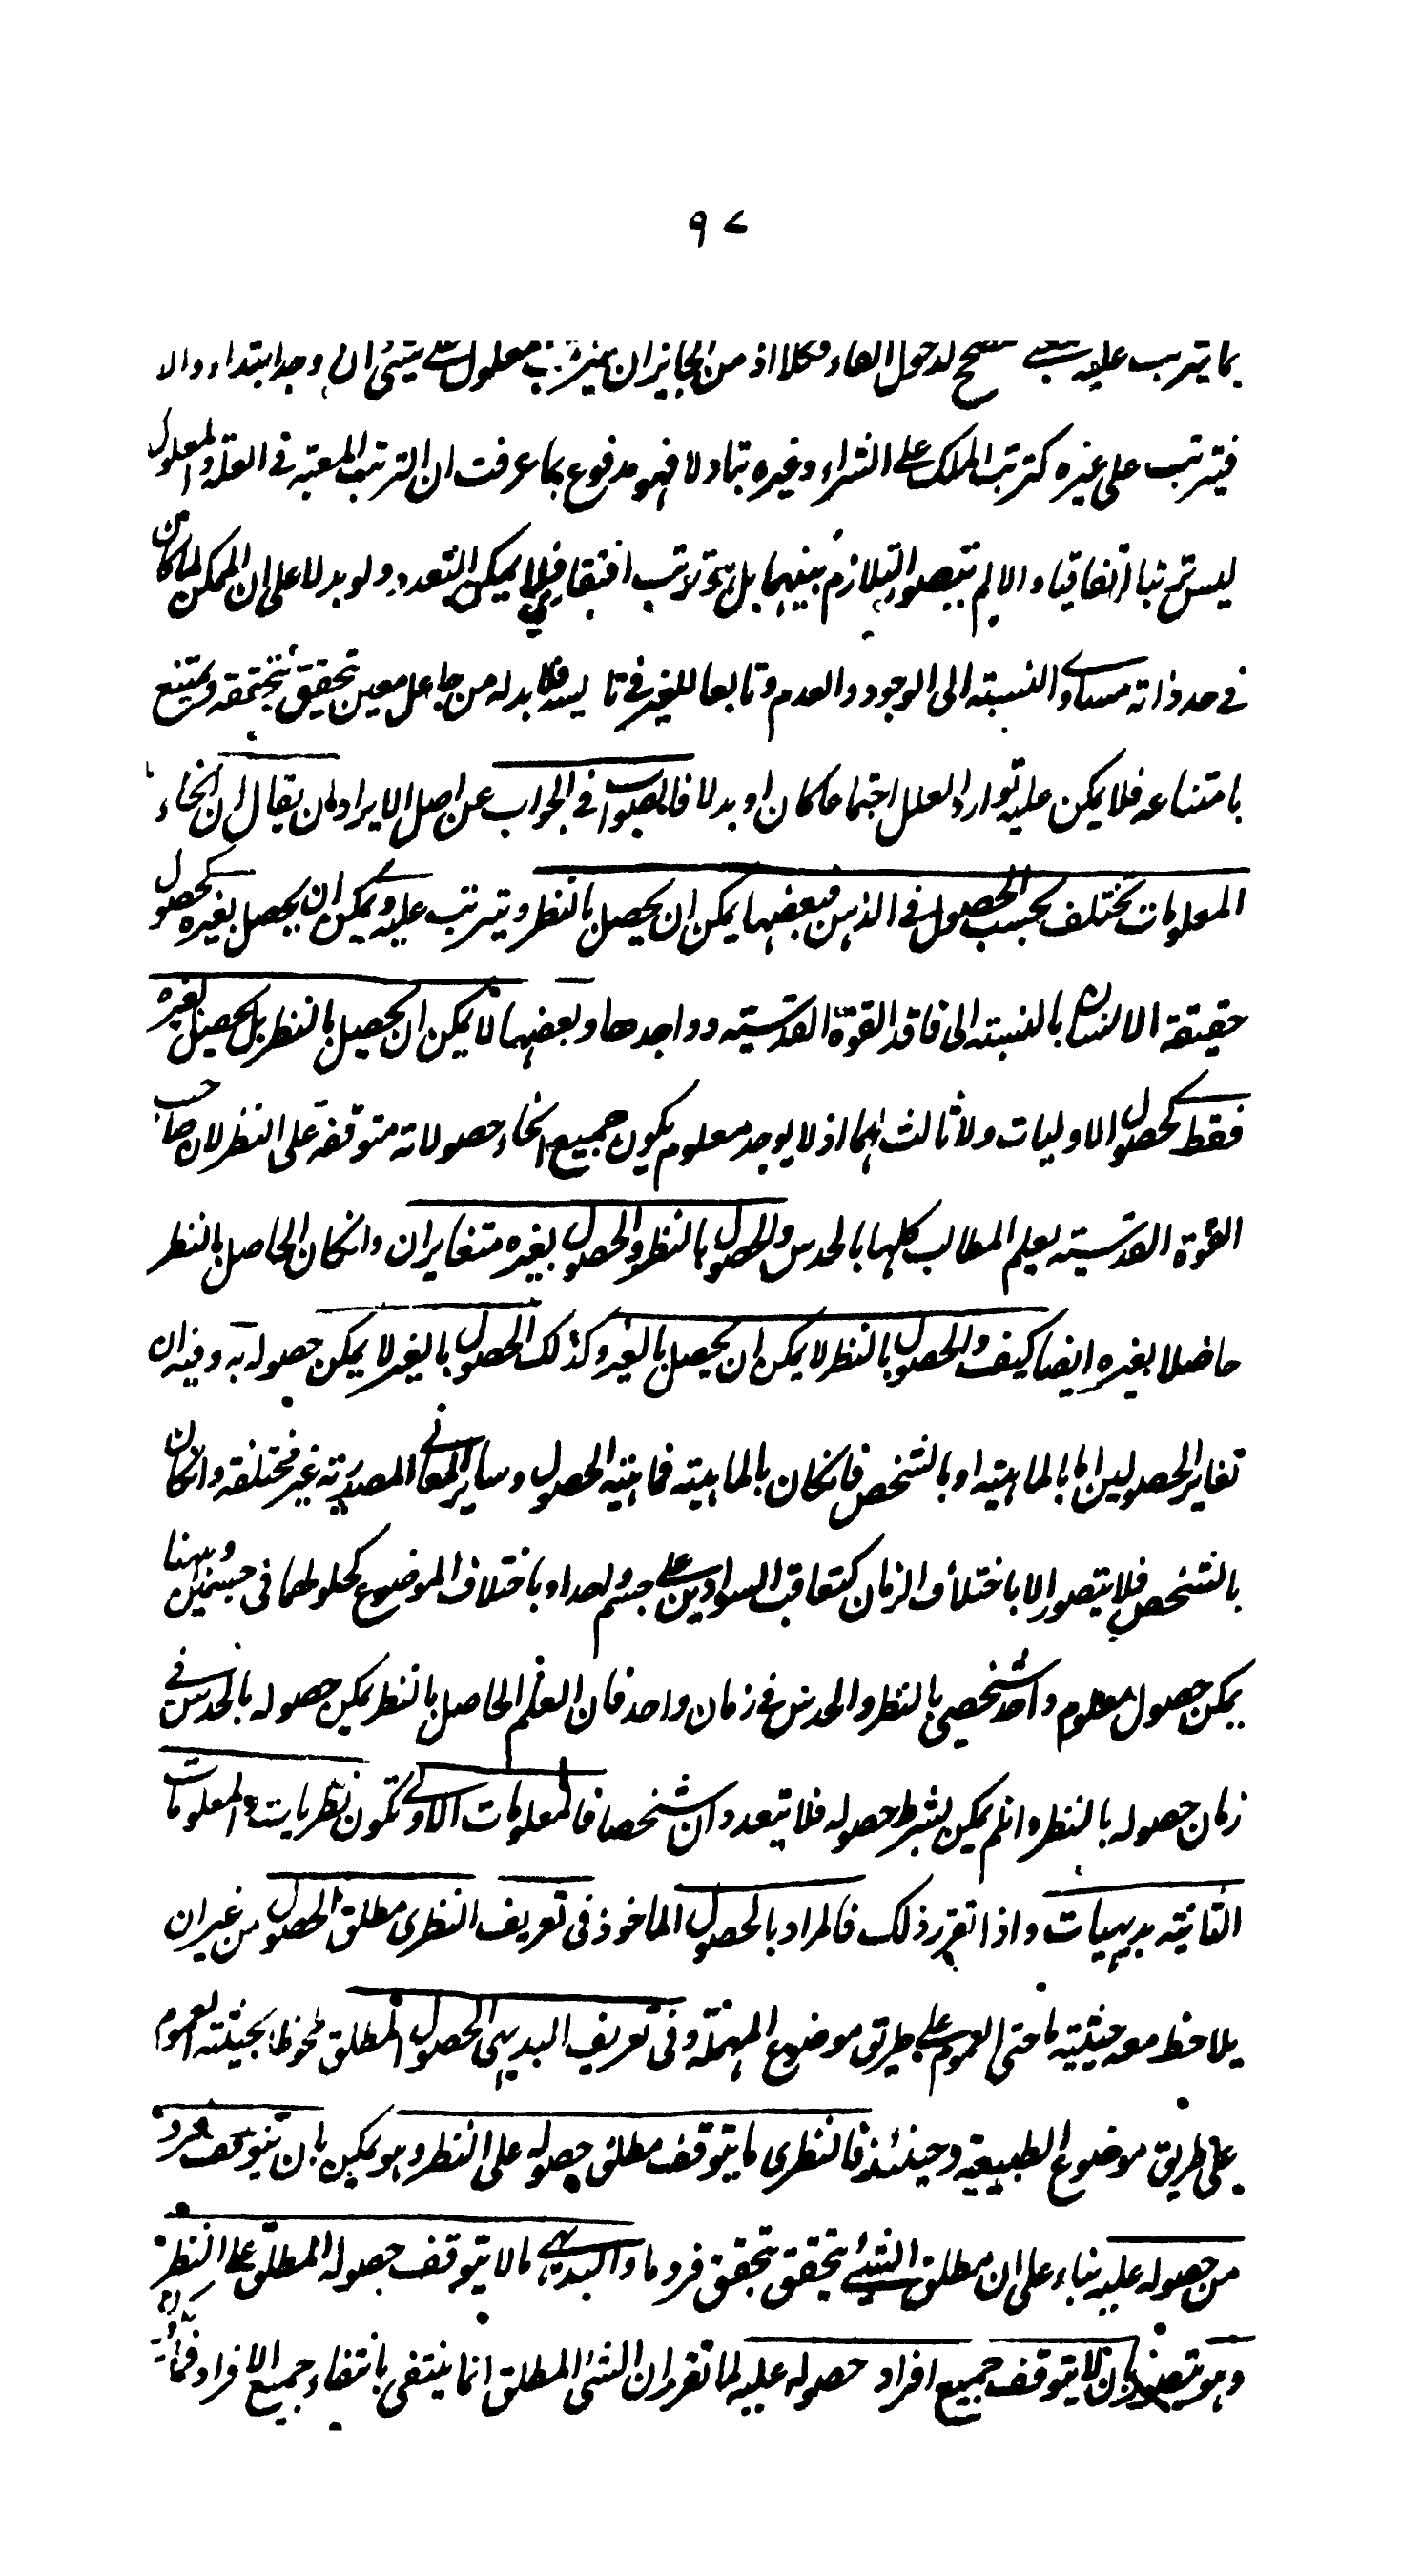 ٩٧
بما يترتب عليه لدخول الفاء فكلا اذ من الجايز ان معلول على شئ ان وجد ابتداء والا
فيترتب على غيره كترتب الملك على الشراء وغيره تبادلا فهو مدفوع بما عرفت ان الترتب المعتبر في العلة والمعلول
ليس ترتبا اتفاقيا والا لم يتصور التلازم بينهما بل هو ترتب افتقار فلا يمكن التعدد ولو بدلا على ان الممكن لما كان
في حد ذاته مساوي النسبته الى الوجود والعدم وتابعا للغير في فلا بد له من جاعل معين تحقق بتحققه ويمتنع
بامتناعه فلا يمكن عليه توارد العلل اجتماعا كان او بدلا فالصواب في الجواب عن اصل الايراد ان يقال ان انحاء
المعلومات تختلف بحسب الحصول في الذهن فبعضها يمكن ان يحصل بالنظر ويترتب عليه ويمكن ان يحصل بغيره كحصول
حقيقة الانسان بالنسبته الى فاقد القوة القدسيته وواجدها وبعضها لا يمكن ان يحصل بالنظر بل يحصل بغيره
فقط كحصول الاوليات ولا ثالث لهما اذ لا يوجد معلوم يكون جميع انحاء حصولاته متوقفة على النظر لان صاحب
القوة القدسيته يعلم المطالب كلها بالحدس والحصول بالنظر والحصول بغيره متغايران وانكان الحاصل بالنظر
حاصلا بغيره ايضا كيف والحصول بالنظر لا يمكن ان يحصل بالغير وكذلك الحصول بالغير لا يمكن حصوله به وفيه ان
تغاير الحصولين اما بالماهيته او بالشخص فانكان بالماهيته فماهيته الحصول وساير المعاني المصدرية غير مختلفه وانكان
بالشخص فلا يتصور الا باختلاف الزمان كتعاقب السوادين على جسم واحد او باختلاف الموضوع كحلولهما في جسمين وههنا
يمكن حصول معلوم واحد شخصي بالنظر والحدس في زمان واحد فان العلم الحاصل بالنظر يمكن حصوله بالحدس في
زمان حصوله بالنظر وانلم يمكن بشرط حصوله فلا يتعددان شخصا فالمعلومات الاولى تكون نظريات والمعلومات
الثانيته بديهيات واذا تقرر ذلك فالمراد بالحصول الماخوذ في تعريف النظرى مطلق الحصول من غير ان
يلاحظ معه حيثيته ما حتى العموم على طريق موضوع المهملة وفي تعريف البديهى الحصول المطلق ملحوظا بحيثيته العموم
على طريق موضوع الطبيعيه وحينئذ فالنظرى ما يتوقف مطلق حصوله على النظر وهو يمكن بان يتوقف فرد
من حصوله عليه بناء على ان مطلق الشئ يتحقق بتحقق فرد ما والبديهي ما لا يتوقف حصوله المطلق على النظر
وهو يتصور بان لا يتوقف جميع افراد حصوله عليه لما تقرر ان الشئ المطلق انما ينتفى بانتفاء جميع الافراد